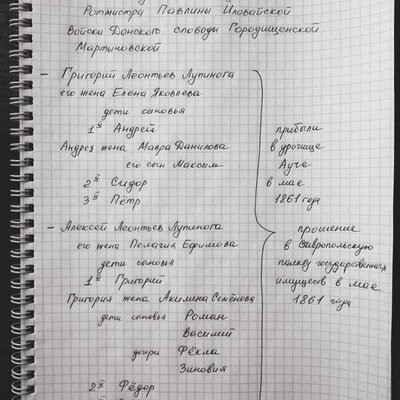 Ротмистра Павлины Иловайской
Войска Донского слободы Городищенской
Мартыновской
- Григорий Леонтьев Лутинога
его жена Елена Яковлева
дети сыновья
1й Андрей
Андрея жена Мавра Данилова
его сын Максим
2й Сидор
3й Пётр
прибыли
в урочище
Ауче
в мае
1861 года
- Алексей Леонтьев Лутинога
его жена Пелагия Ефимова
дети сыновья
1й Григорий
Григория жена Акилина Семёнова
дети сыновья Роман
Василий
дочери Фёкла
Зиновия
2й Фёдор
прошение
в Ставропольскую
палату государственных
имуществ в мае
1861 года